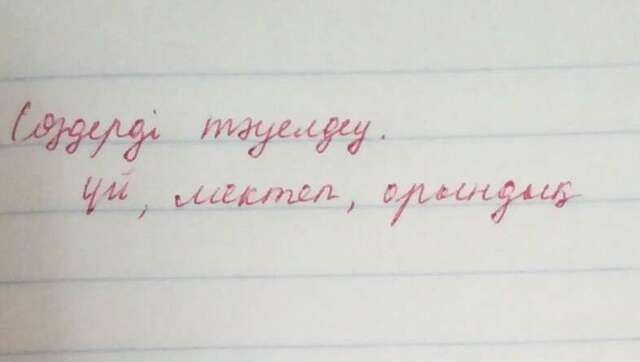 Сөздерді тәуелдеу.
үй, мектеп, орындық